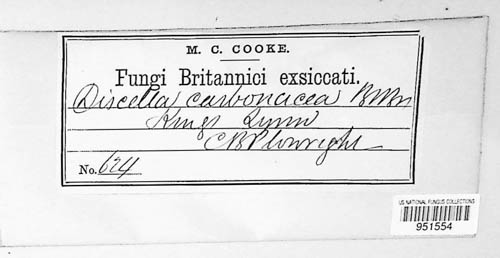 M. C. COOKE.
Fungi Britannici exsiccati.
Discella carbonacea B&Br
Kings Lynn
C B Plowright
No. 624
US NATIONAL FUNGUS COLLECTIONS
951554